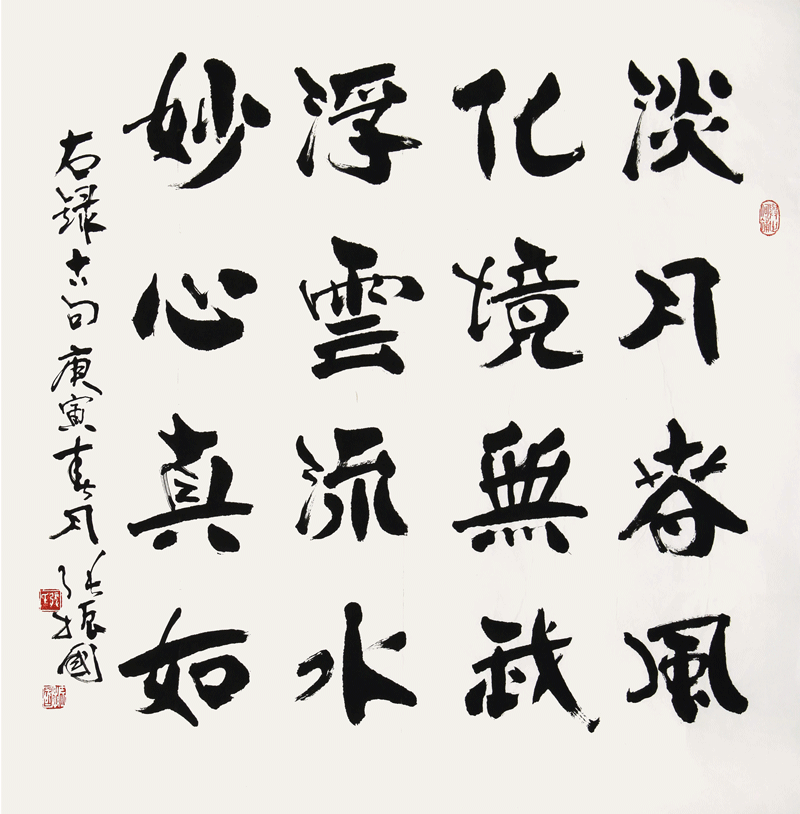 淡月春風
化境無武
浮雲流水
妙心真如
右録古句庚寅春月張振國